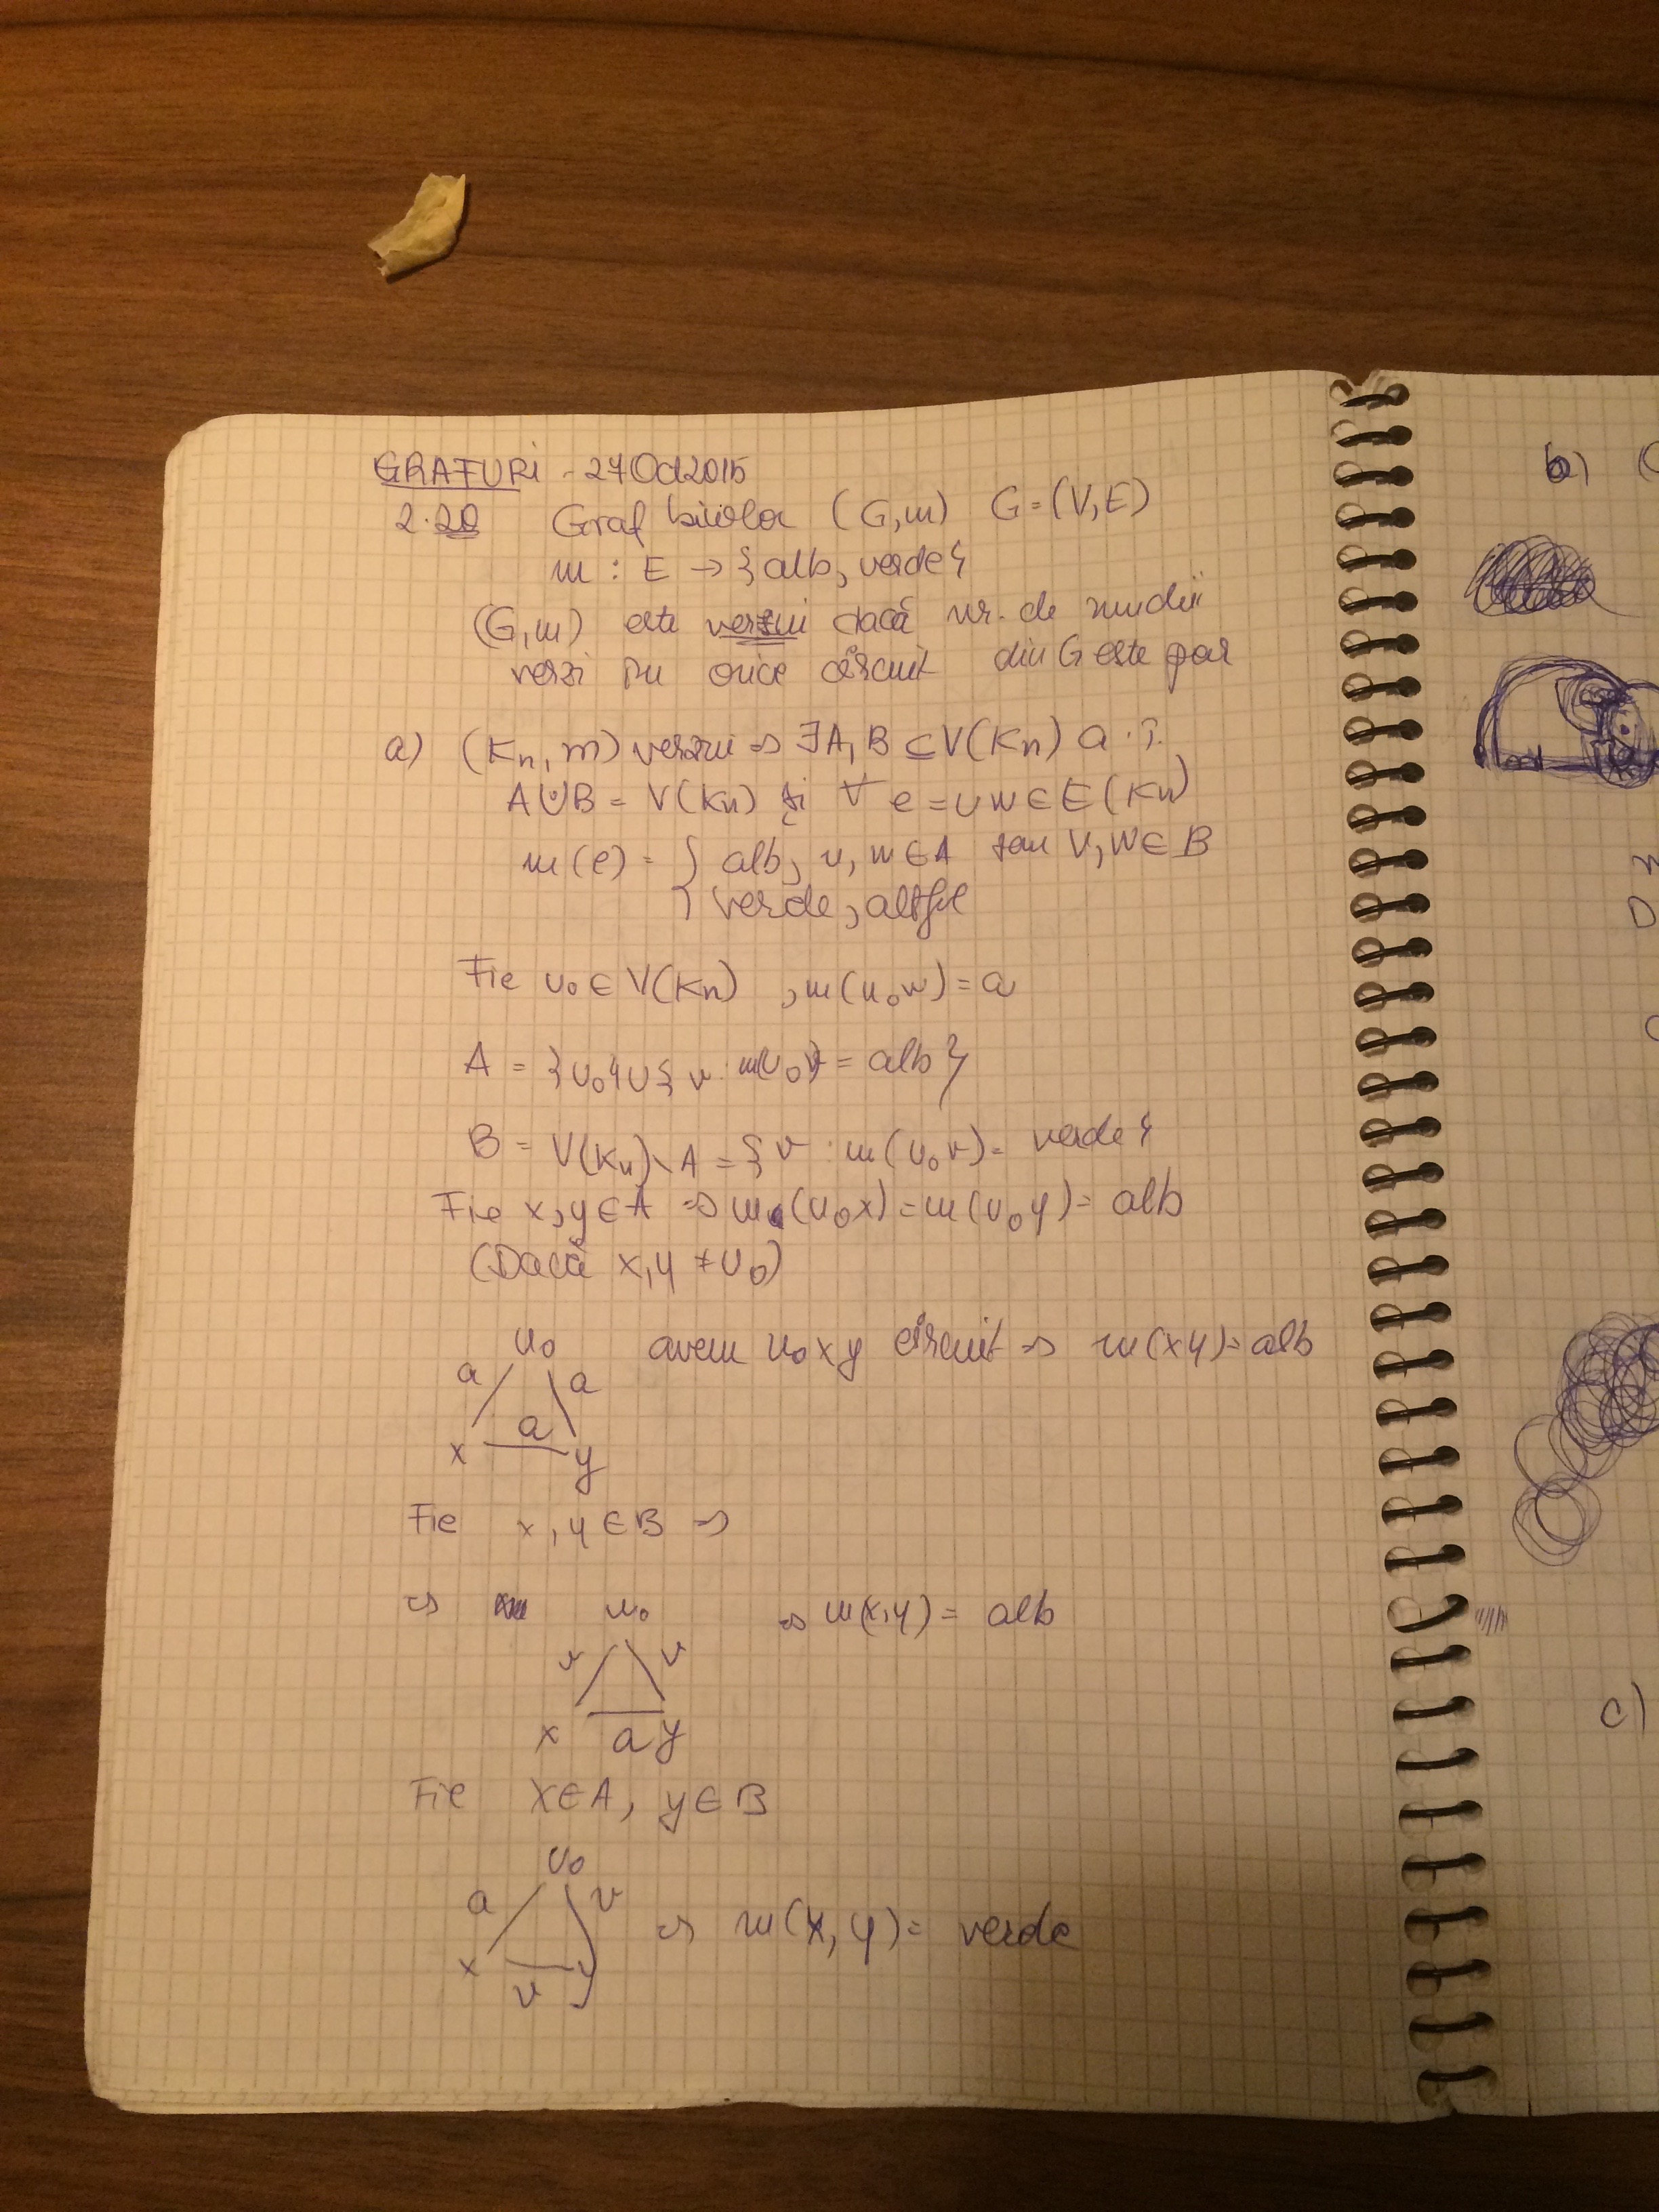 GRAFURI - 27Oct2015
2.20 Graf bicolor (G,m) G=(V,E)
m : E → {alb, verde}
(G,m) este verzui dacă nr. de muchii
verzi în orice circuit din G este par
a) (Kn, m) verzui => ∃A, B ⊆ V(Kn) a.î.
A∪B = V(Kn) și ∀ e = vw ∈ E(Kn)
m(e) = { alb, v, w ∈ A sau v, w ∈ B
{ verde, altfel
Fie v₀ ∈ V(Kn) , m(v₀w) = a
A = {v₀} ∪ { v : m(v₀v) = alb }
B = V(Kn) \ A = { v : m(v₀v) = verde }
Fie x, y ∈ A => m(v₀x) = m(v₀y) = alb
(Dacă x, y ≠ v₀)
v₀ avem v₀xy circuit => m(xy) = alb
a a
a
x y
Fie x, y ∈ B =>
=> v₀ => m(x,y) = alb
v v
x a y
Fie x ∈ A, y ∈ B
v₀
a v
=> m(x, y) = verde
x y
v
b)
c)